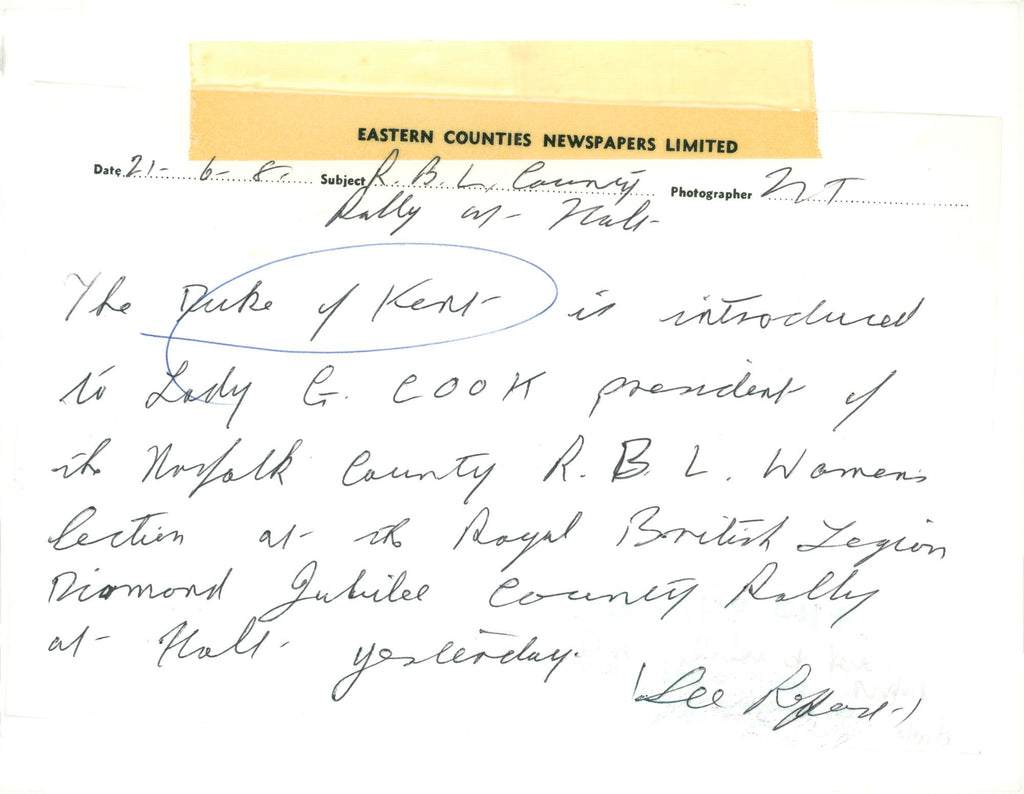 EASTERN COUNTIES NEWSPAPERS LIMITED
Date 21-6-8. Subject R. B. L. County Photographer NT
Rally at Holt
The Duke of Kent is introduced
to Lady G. COOK president of
the Norfolk County R. B. L. Womens
Section at the Royal British Legion
Diamond Jubilee County Rally
at Holt yesterday.
(See Report)